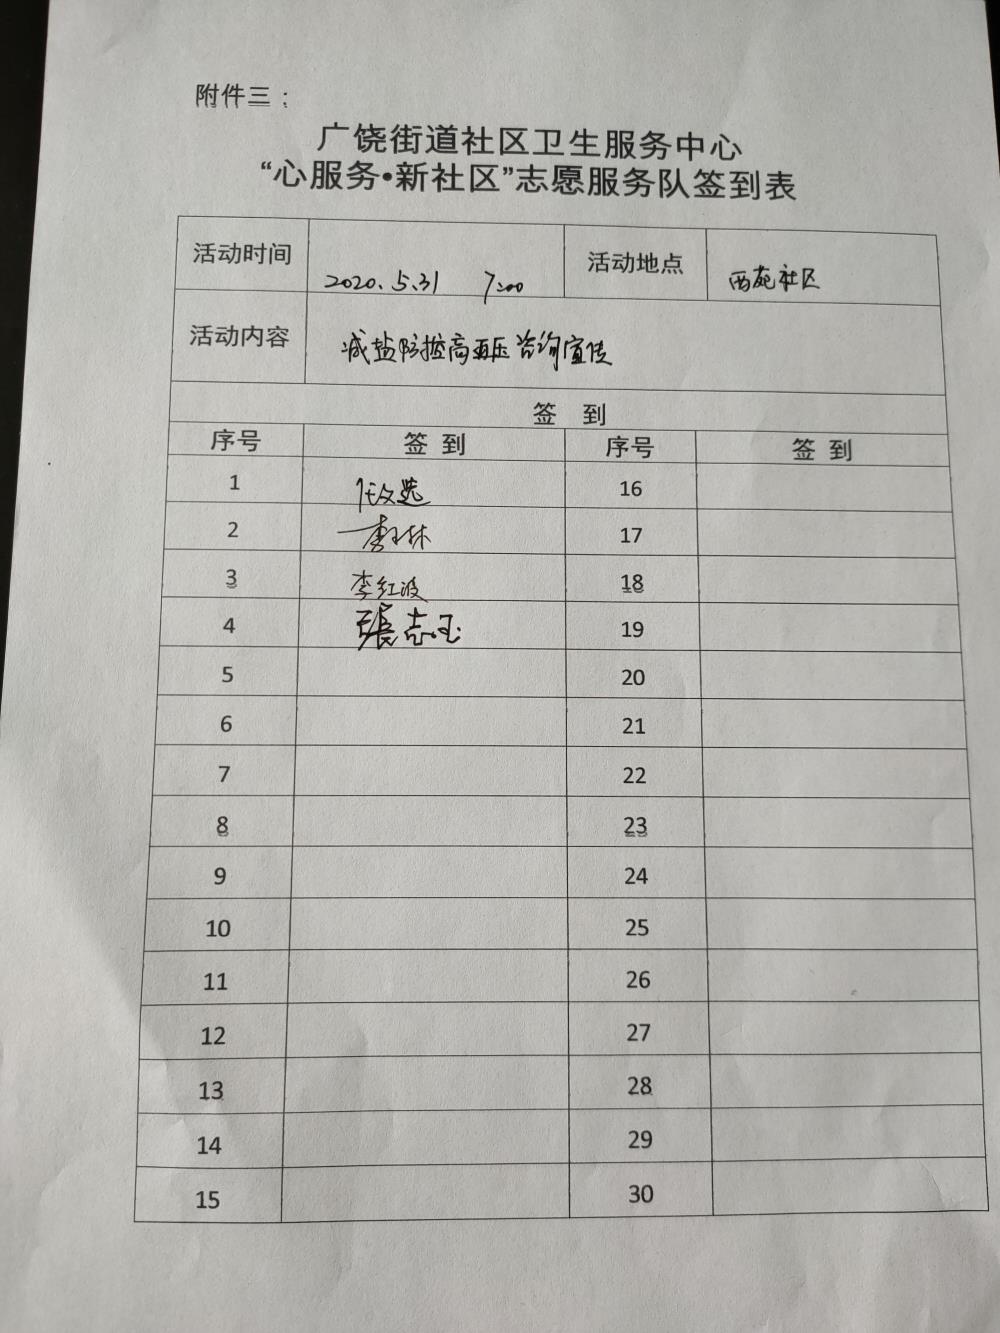 附件三：
广饶街道社区卫生服务中心
“心服务•新社区”志愿服务队签到表
活动时间 2020.5.31 7:00 活动地点 西苑社区
活动内容 减盐防控高血压咨询宣传
签 到
序号 签 到 序号 签 到
1 任文选 16
2 17
3 李红波 18
4 張志玉 19
5 20
6 21
7 22
8 23
9 24
10 25
11 26
12 27
13 28
14 29
15 30